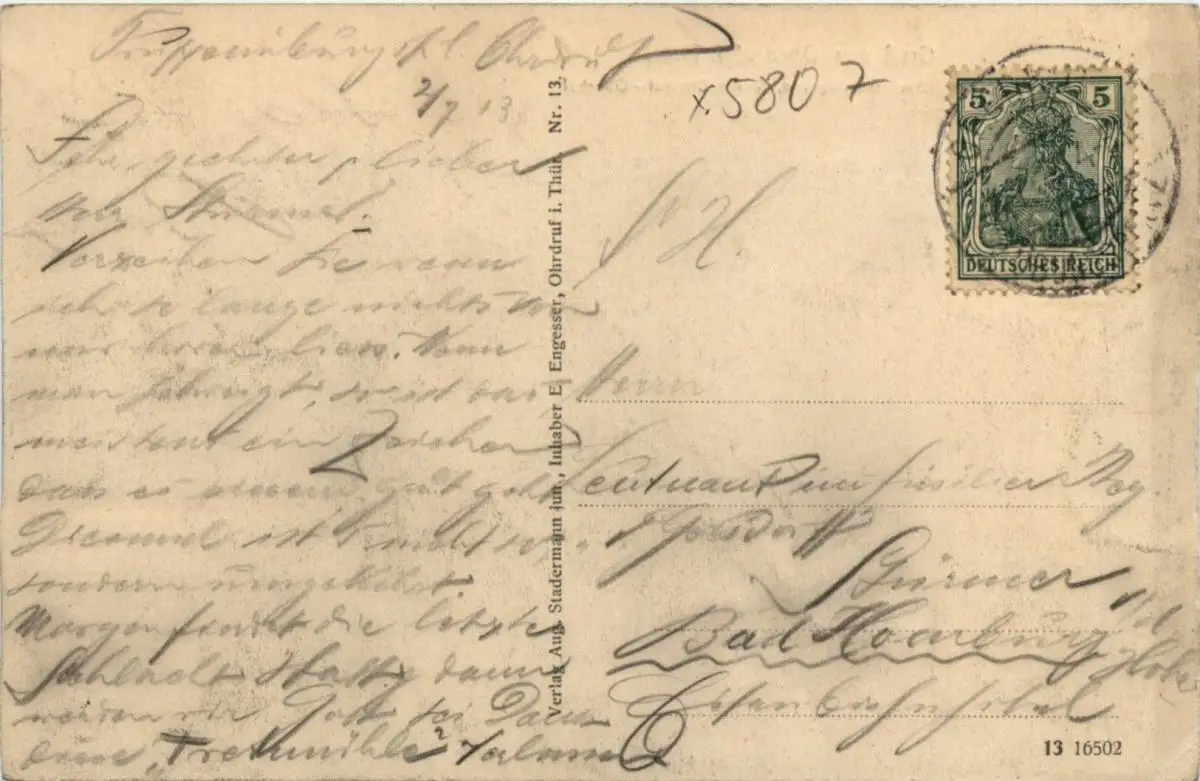 Truppenübungspl. Ohrdruf
2/7 13
Sehr geehrter, lieber
Herr Stürmer.
Verzeihen Sie wenn
ich so lange nichts von
mir hören liess. Wenn
man schweigt, ist das
meistens ein Zeichen
dass es einem gut geht
Diesmal ist's nicht so,
sondern umgekehrt.
Morgen findet die letzte
Schlacht statt, dann
werden wir Gott sei Dank
diese „Tretmühle"
x.5807
5 5
DEUTSCHES REICH
S. H.
Herrn
Leutnant im Füsilier Reg.
v. Gersdorff
Stürmer
Bad Homburg v/d
Höhe
Verlag Aug. Stadermann jun., Inhaber E. Engesser, Ohrdruf i. Thür. Nr. 13.
13 16502